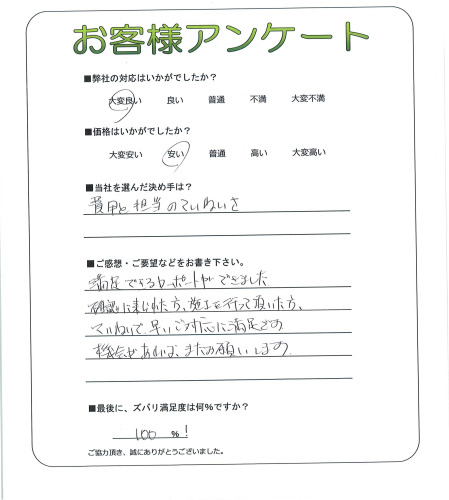 お客様アンケート
■弊社の対応はいかがでしたか？
大変良い 良い 普通 不満 大変不満
■価格はいかがでしたか？
大変安い 安い 普通 高い 大変高い
■当社を選んだ決め手は？
費用と担当のていねいさ
■ご感想・ご要望などをお書き下さい。
満足できるカーポートができました
確認に来られた方、施工を行って頂いた方、
ていねいで、早いご対応に満足です
機会があれば、またお願いします。
■最後に、ズバリ満足度は何%ですか？
100 %！
ご協力頂き、誠にありがとうございました。